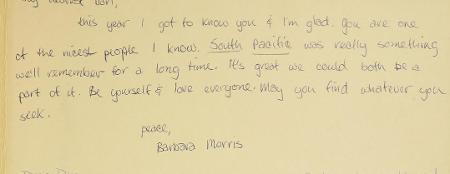 this year I got to know you & I'm glad. you are one
of the nicest people I know. South Pacific was really something
we'll remember for a long time. It's great we could both be a
part of it. Be yourself & love everyone. May you find whatever you
seek.
peace,
Barbara Morris